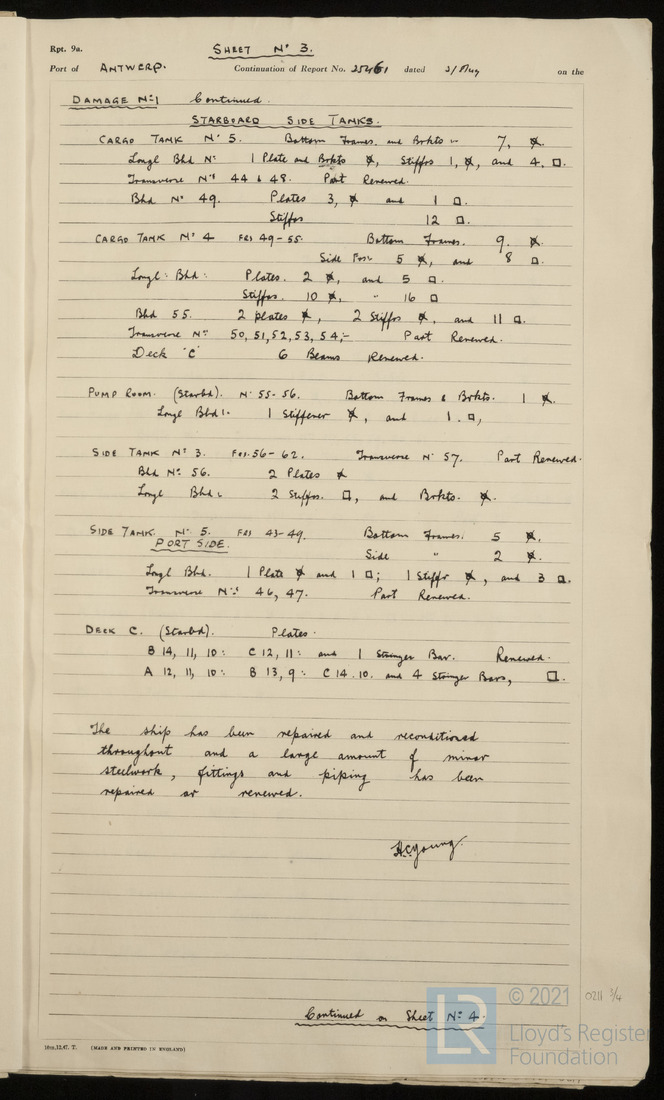 Rpt. 9a. SHEET Nº 3.
Port of ANTWERP. Continuation of Report No. 25461 dated 31 Aug on the
DAMAGE Nº1 Continued.
STARBOARD SIDE TANKS.
CARGO TANK Nº 5. Bottom Frames and Brkts 7,
Longl Bhd Nº 1 Plate and Brkts, Stiffrs 1, and 4. □.
Transverse Nºs 44 & 48. Part Renewed.
Bhd Nº 49. Plates 3, and 1 □.
Stiffrs 12 □.
CARGO TANK Nº 4 FRS 49-55. Bottom Frames. 9.
Side 5, and 8 □.
Longl: Bhd: Plates. 2, and 5 □.
Stiffrs. 10, " 16 □
Bhd 55. 2 plates, 2 Stiffrs, and 11 □.
Transverse Nº: 50, 51, 52, 53, 54,- Part Renewed.
Deck 'C' 6 Beams Renewed.
PUMP ROOM. (Starbd). Nº 55-56. Bottom Frames & Brkts. 1
Longl Bhd:- 1 Stiffener, and 1. □,
SIDE TANK Nº 3. Frs. 56-62. Transverse Nº 57. Part Renewed.
Bhd Nº 56. 2 Plates
Longl Bhd: 2 Stiffrs. □, and Brkts.
SIDE TANK. Nº 5. FRS 43-49. Bottom Frames. 5
PORT SIDE.
Side " 2
Longl Bhd. 1 Plate and 1 □; 1 Stiffr, and 3 □.
Transverse Nº: 46, 47. Part Renewed.
DECK C. (Starbd). Plates.
B 14, 11, 10: C 12, 11: and 1 Stringer Bar. Renewed.
A 12, 11, 10: B 13, 9: C 14. 10. and 4 Stringer Bars, □.
The ship has been repaired and reconditioned
throughout and a large amount of minor
steelwork, fittings and piping has been
repaired or renewed.
HCYoung.
Continued on Sheet Nº 4.
10m,12,47. T. (MADE AND PRINTED IN ENGLAND)
LR © 2021 Lloyd's Register Foundation
0211 3/4